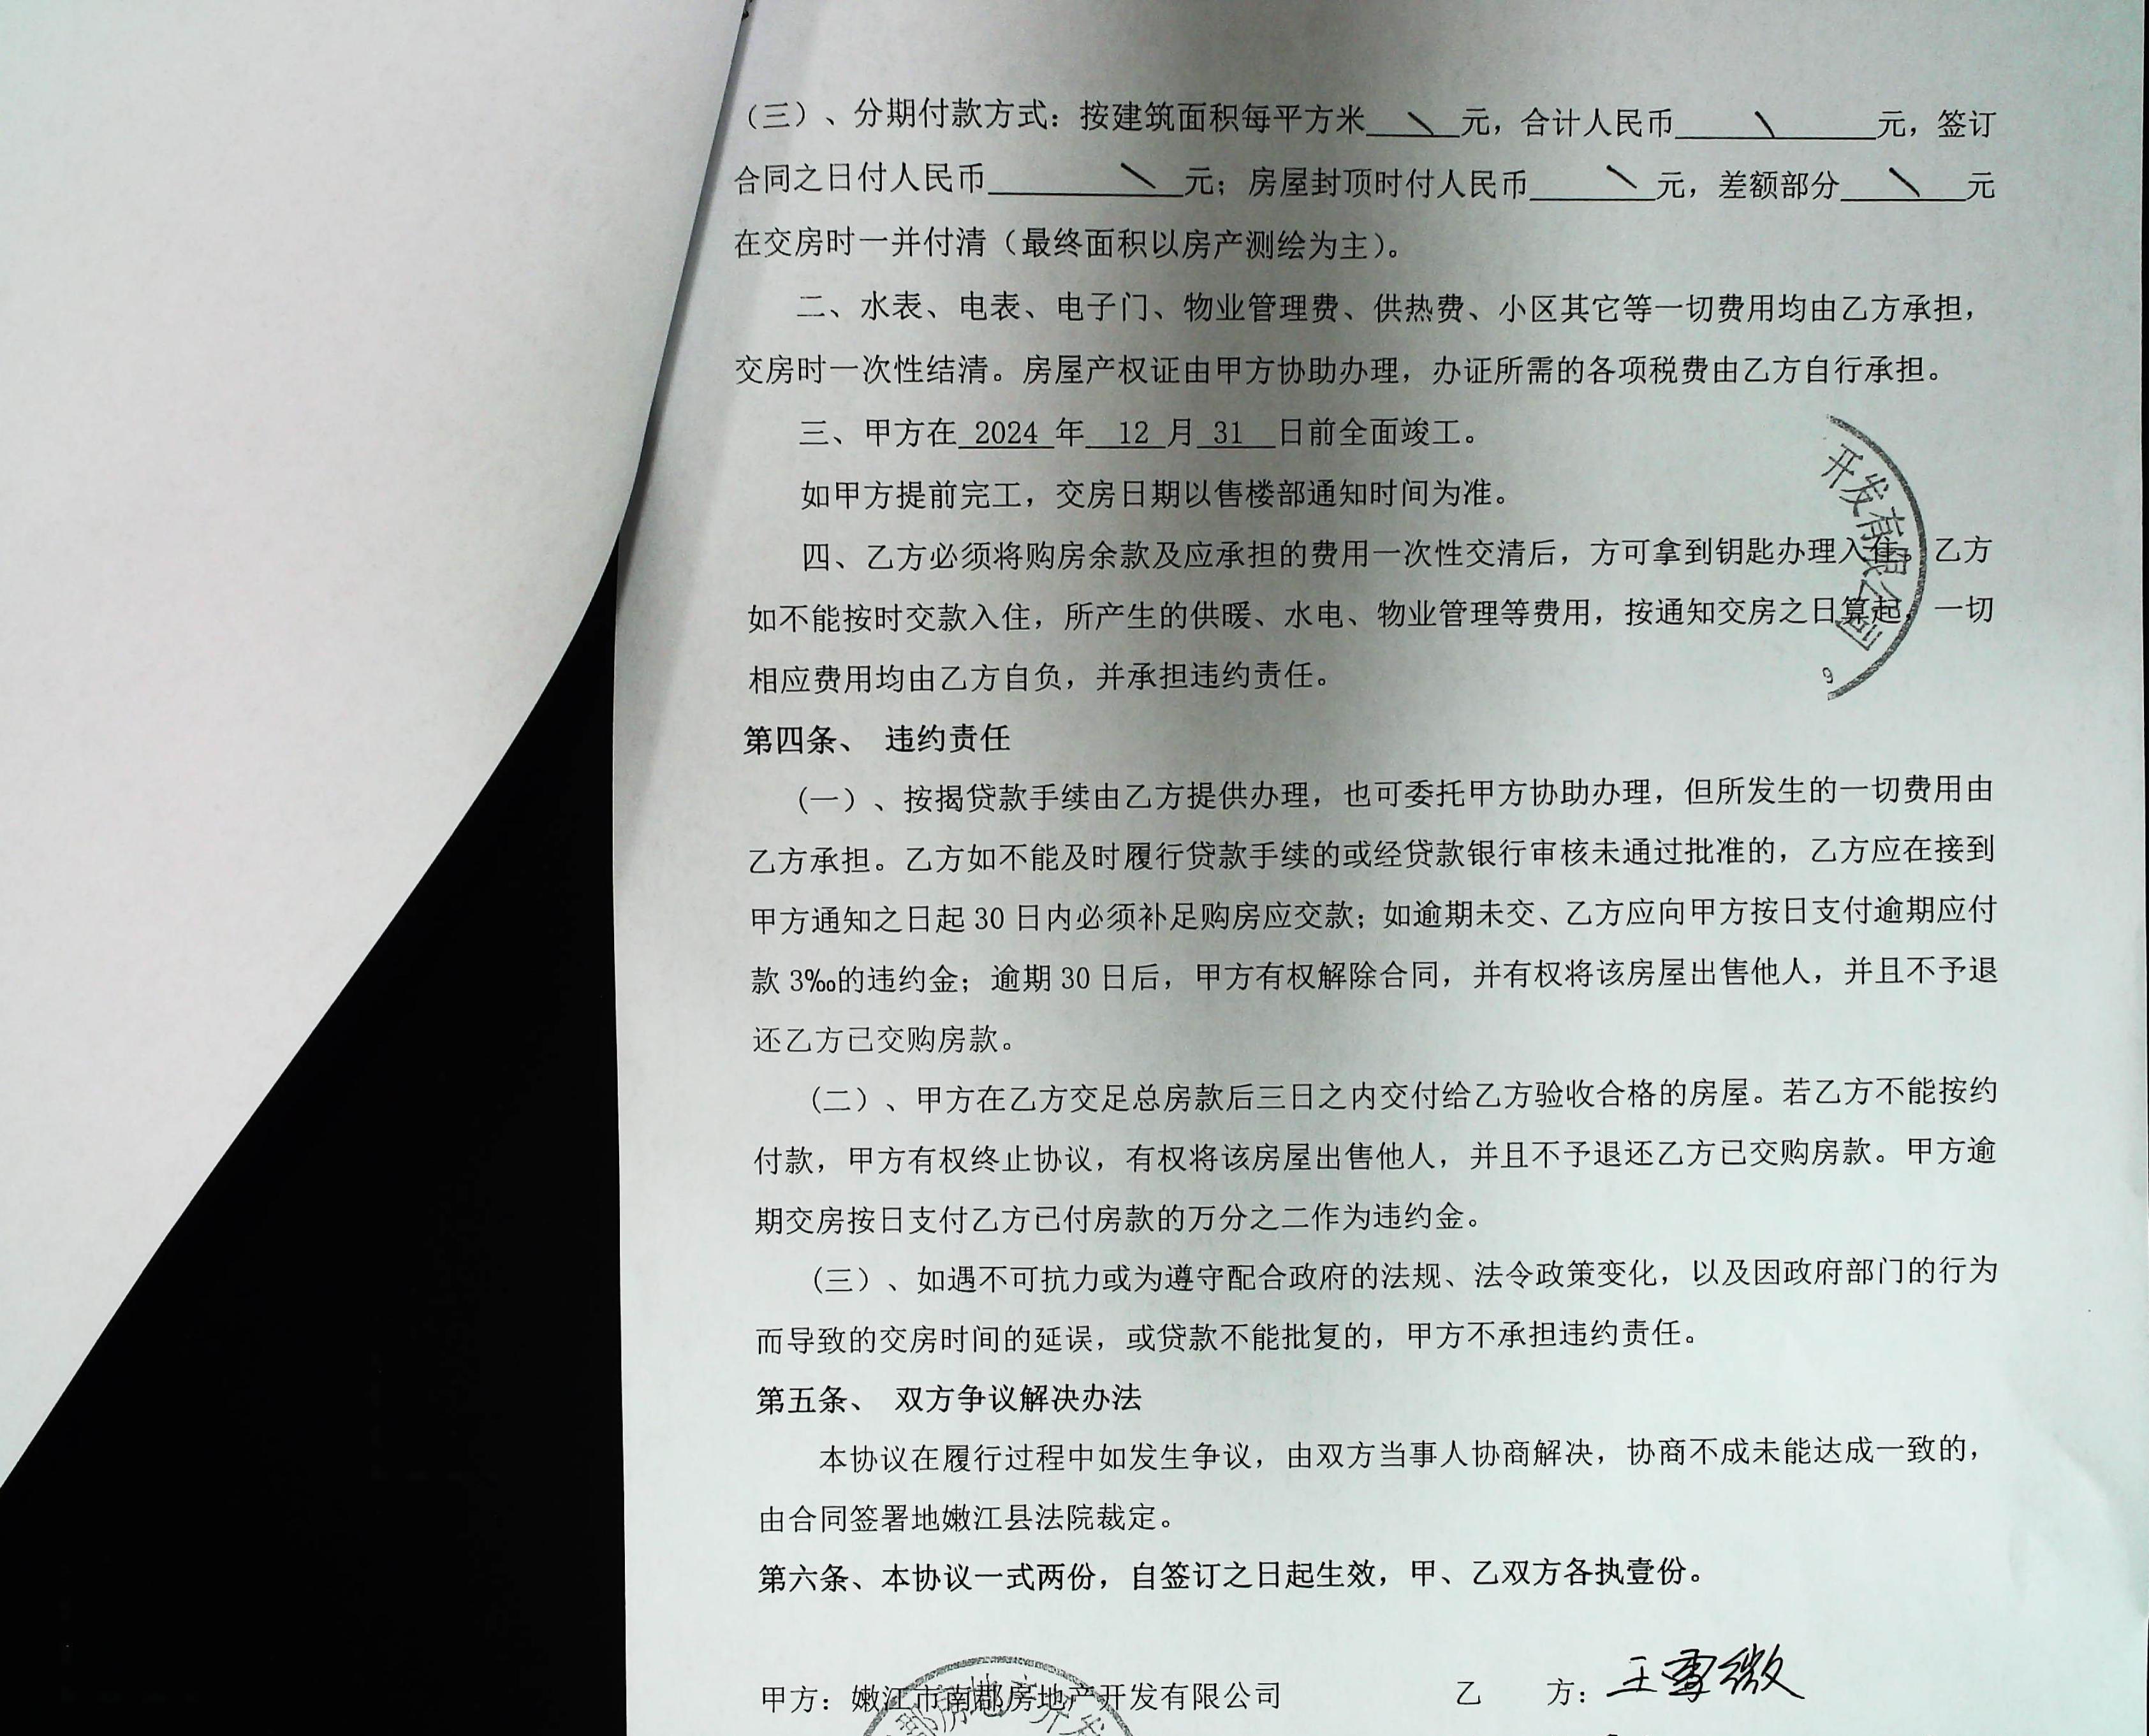 （三）、分期付款方式：按建筑面积每平方米＼元，合计人民币＼元，签订
合同之日付人民币＼元；房屋封顶时付人民币＼元，差额部分＼元
在交房时一并付清（最终面积以房产测绘为主）。
二、水表、电表、电子门、物业管理费、供热费、小区其它等一切费用均由乙方承担，
交房时一次性结清。房屋产权证由甲方协助办理，办证所需的各项税费由乙方自行承担。
三、甲方在 2024 年 12 月 31 日前全面竣工。
如甲方提前完工，交房日期以售楼部通知时间为准。
四、乙方必须将购房余款及应承担的费用一次性交清后，方可拿到钥匙办理入住。乙方
如不能按时交款入住，所产生的供暖、水电、物业管理等费用，按通知交房之日算起，一切
相应费用均由乙方自负，并承担违约责任。
开发有限公司
9
第四条、 违约责任
（一）、按揭贷款手续由乙方提供办理，也可委托甲方协助办理，但所发生的一切费用由
乙方承担。乙方如不能及时履行贷款手续的或经贷款银行审核未通过批准的，乙方应在接到
甲方通知之日起 30 日内必须补足购房应交款；如逾期未交、乙方应向甲方按日支付逾期应付
款 3‰的违约金；逾期 30 日后，甲方有权解除合同，并有权将该房屋出售他人，并且不予退
还乙方已交购房款。
（二）、甲方在乙方交足总房款后三日之内交付给乙方验收合格的房屋。若乙方不能按约
付款，甲方有权终止协议，有权将该房屋出售他人，并且不予退还乙方已交购房款。甲方逾
期交房按日支付乙方已付房款的万分之二作为违约金。
（三）、如遇不可抗力或为遵守配合政府的法规、法令政策变化，以及因政府部门的行为
而导致的交房时间的延误，或贷款不能批复的，甲方不承担违约责任。
第五条、 双方争议解决办法
本协议在履行过程中如发生争议，由双方当事人协商解决，协商不成未能达成一致的，
由合同签署地嫩江县法院裁定。
第六条、本协议一式两份，自签订之日起生效，甲、乙双方各执壹份。
甲方：嫩江市南郡房地产开发有限公司 乙 方：王雪微
郡房地产开发